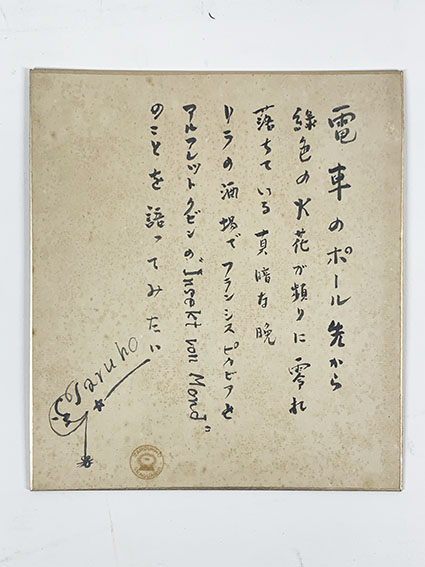 電車のポール先から
綠色の火花が頻りに零れ
落ちている真暗な晩
リラの酒場でフランシスピカビアと
アルフレットクビンの"Insekt von Mond"
のことを語ってみたい
Taruho